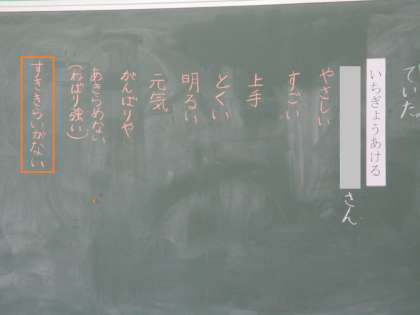 ていた。
いちぎょうあける
さん
やさしい
すごい
上手
とくい
明るい
元気
がんばりや
あきらめない
(ねばり強い)
すききらいがない